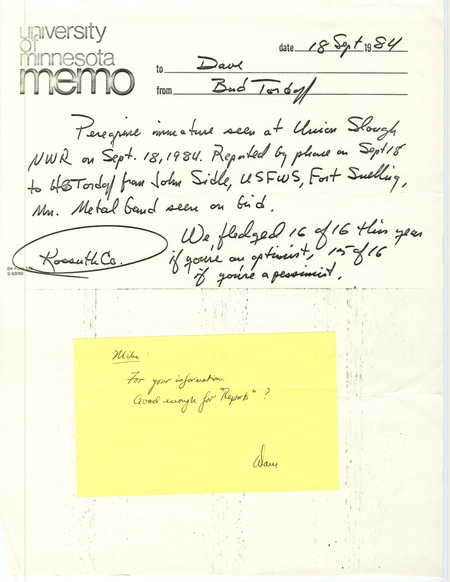 university
of
minnesota
memo
date 18 Sept 1984
to Dave
from Bud Tordoff
Peregrine immature seen at Union Slough
NWR on Sept. 18, 1984. Reported by phone on Sept 18
to HB Tordoff from John Sidle, USFWS, Fort Snelling,
Mn. Metal band seen on bird.
Kossuth Co.
We fledged 16 of 16 this year
if you're an optimist, 15 of 16
if you're a pessimist.
S-92050
Mike:
For your information.
Good enough for "Reports"?
Dave